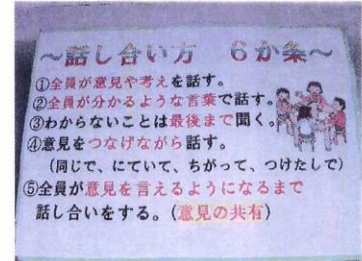 ～話し合い方　６か条～
①全員が意見や考えを話す。
②全員が分かるような言葉で話す。
③わからないことは最後まで聞く。
④意見をつなげながら話す。
（同じで、にていて、ちがって、つけたしで）
⑤全員が意見を言えるようになるまで
話し合いをする。（意見の共有）